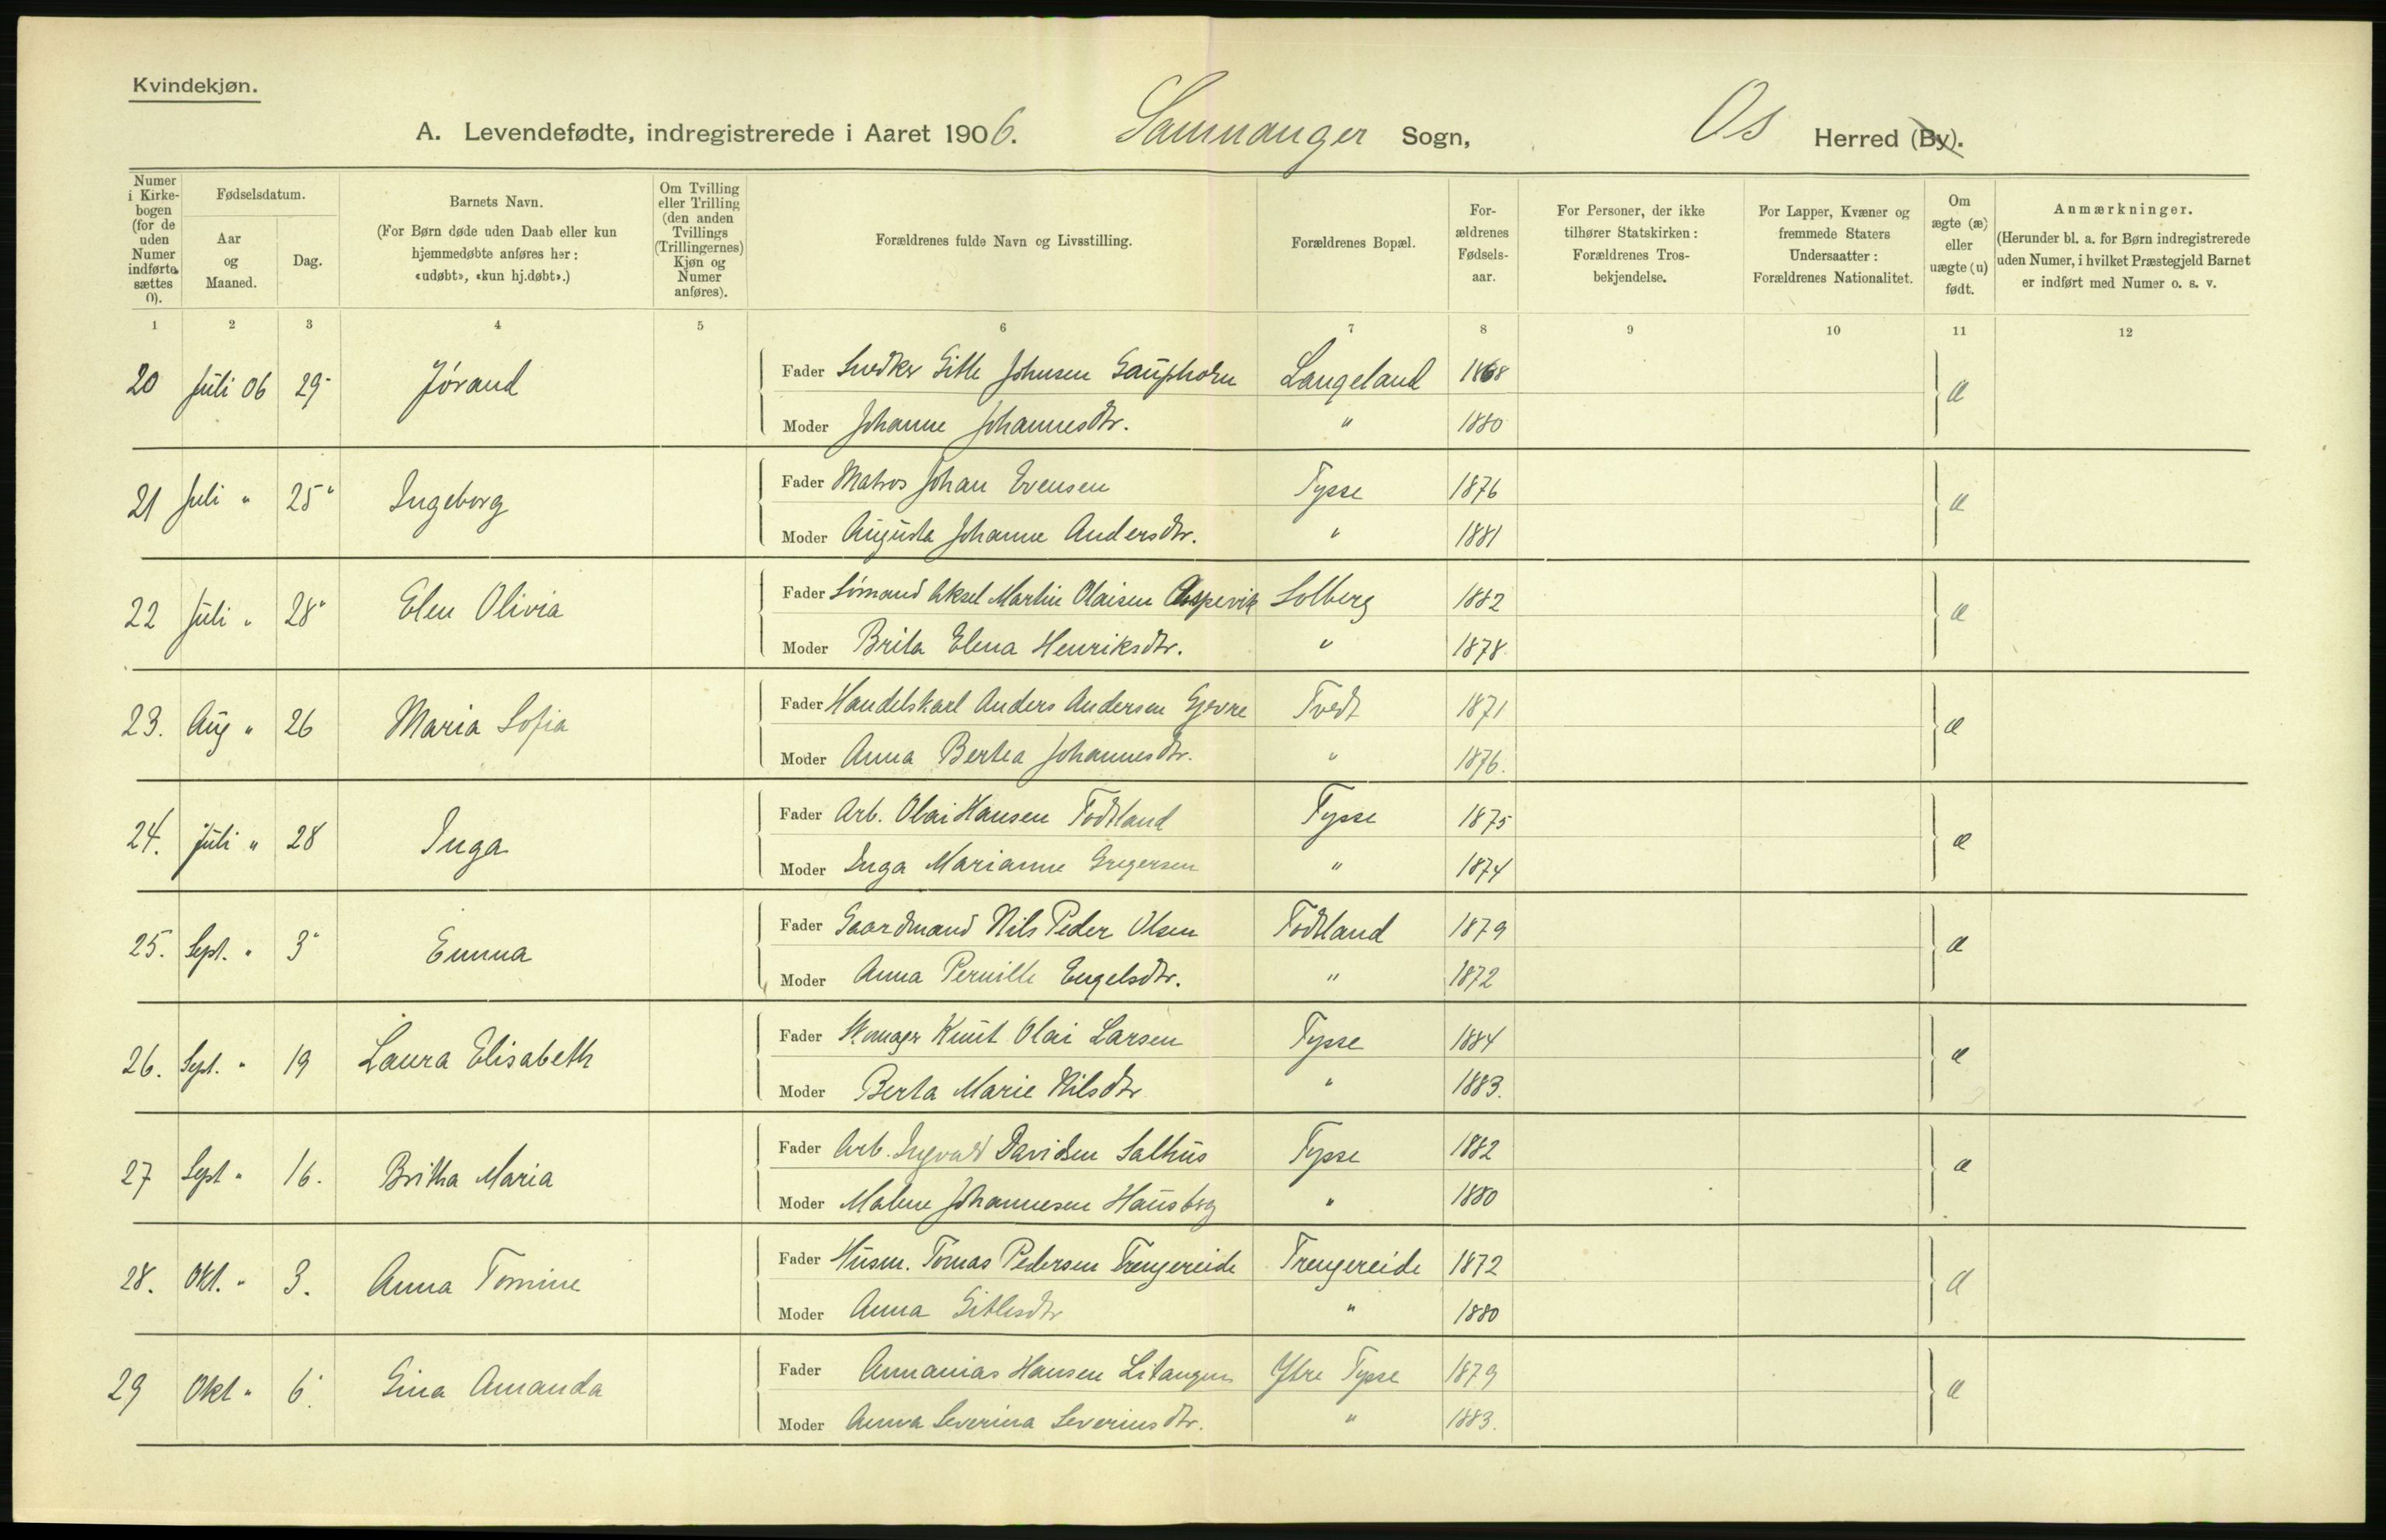 Kvindekjøn.
A. Levendefødte, indregistrerede i Aaret 1906. Samnanger Sogn, Os Herred (By).
Numer i Kirkebogen (for de uden Numer indførte sættes 0).
Fødselsdatum.
Aar og Maaned.
Dag.
Barnets Navn.
(For Børn døde uden Daab eller kun hjemmedøbte anføres her: «udøbt», «kun hj.døbt».)
Om Tvilling eller Trilling (den anden Tvillings (Trillingernes) Kjøn og Numer anføres).
Forældrenes fulde Navn og Livsstilling.
Forældrenes Bopæl.
Forældrenes Fødselsaar.
For Personer, der ikke tilhører Statskirken: Forældrenes Trosbekjendelse.
For Lapper, Kvæner og fremmede Staters Undersaatter: Forældrenes Nationalitet.
Om ægte (æ) eller uægte (u) født.
Anmærkninger.
(Herunder bl. a. for Børn indregistrerede uden Numer, i hvilket Præstegjeld Barnet er indført med Numer o. s. v.
1 2 3 4 5 6 7 8 9 10 11 12
20 Juli 06 29 Jórand Fader Snedker Gitle Johnsen Langeland 1868 æ
Moder Johanne Johannesdtr. " 1880
21 Juli " 25 Ingeborg Fader Matros Johan Evensen Tysse 1876 æ
Moder Augusta Johanne Andersdtr. " 1881
22 Juli " 28 Elen Olivia Fader Sömand Aksel Martin Olaisen Aspevik Solberg 1882 æ
Moder Brita Elena Henriksdtr. " 1878
23. Aug " 26 Maria Sofia Fader Handelskarl Anders Andersen Gjevre Tvedt 1871 æ
Moder Anna Bertea Johannesdtr. " 1876.
24. Juli " 28 Inga Fader Arb. Olai Hansen Todtland Tysse 1875 æ
Moder Inga Marianne Gregersen " 1874
25. Sept. " 3 Emma Fader Gaardmand Nils Peder Olsen Todtland 1879 æ
Moder Anna Pernille Engelsdtr. " 1872
26. Sept. " 19 Laura Elisabeth Fader Skomager Knut Olai Larsen Tysse 1884 æ
Moder Berta Marie Nilsdtr " 1883.
27 Sept " 16. Britha Maria Fader Arb. Ingvald Davidsen Salhus Tysse 1882 æ
Moder Malene Johannesen Hausberg " 1880
28. Okt. " 3. Anna Tomine Fader Husm. Tomas Pedersen Trengereide Trengereide 1872 æ
Moder Anna Gitlesdtr " 1880
29 Okt " 6. Gina Amanda Fader Annanias Hansen Ytre Tysse 1879 æ
Moder Anna Severina Severinsdtr. " 1883.